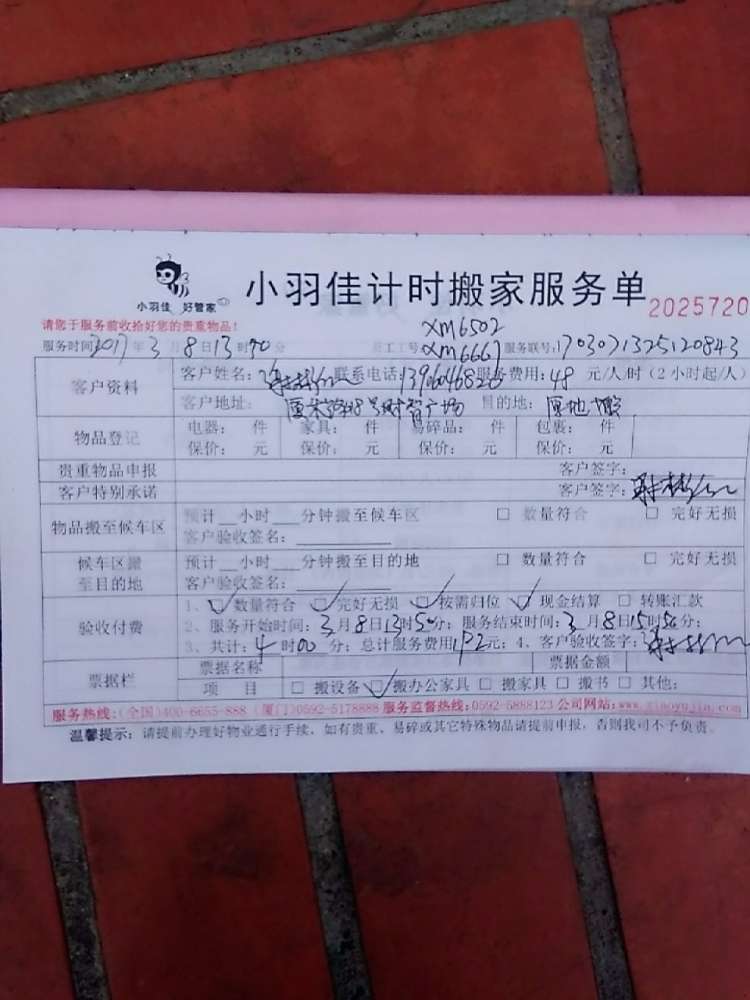 小羽佳 好管家
小羽佳计时搬家服务单
2025720
请您于服务前收拾好您的贵重物品!
XM6502
服务时间2017年3月8日13时50分 员工工号XM6667 服务联号:1703071325120843
客户资料 客户姓名: 联系电话:服务费用:48元/人/时(2小时起/人)
客户地址: 号财智广场 目的地:原地搬
物品登记 电器: 件 家具: 件 易碎品: 件 包裹: 件
保价: 元 保价: 元 保价: 元 保价: 元
贵重物品申报 客户签字:
客户特别承诺 客户签字:
物品搬至候车区 预计__小时___分钟搬至候车区 □ 数量符合 □ 完好无损
客户验收签名:
候车区搬至目的地 预计__小时___分钟搬至目的地 □ 数量符合 □ 完好无损
客户验收签名:
验收付费 1、☑数量符合 ☑完好无损 ☑按需归位 ☑现金结算 □ 转账汇款
2、服务开始时间:3月8日13时50分; 服务结束时间:3月8日15时50分;
3、共计:4时00分; 总计服务费用192元; 4、客户验收签字:
票据栏 票据名称 票据金额
项 目 □ 搬设备 ☑搬办公家具 □ 搬家具 □ 搬书 □ 其他:
服务热线:(全国)400-6655-888 (厦门)0592-5178888 服务监督热线:0592-5888123 公司网站:www.xiaoyujia.com
温馨提示: 请提前办理好物业通行手续,如有贵重、易碎或其它特殊物品请提前申报,否则我司不予负责。